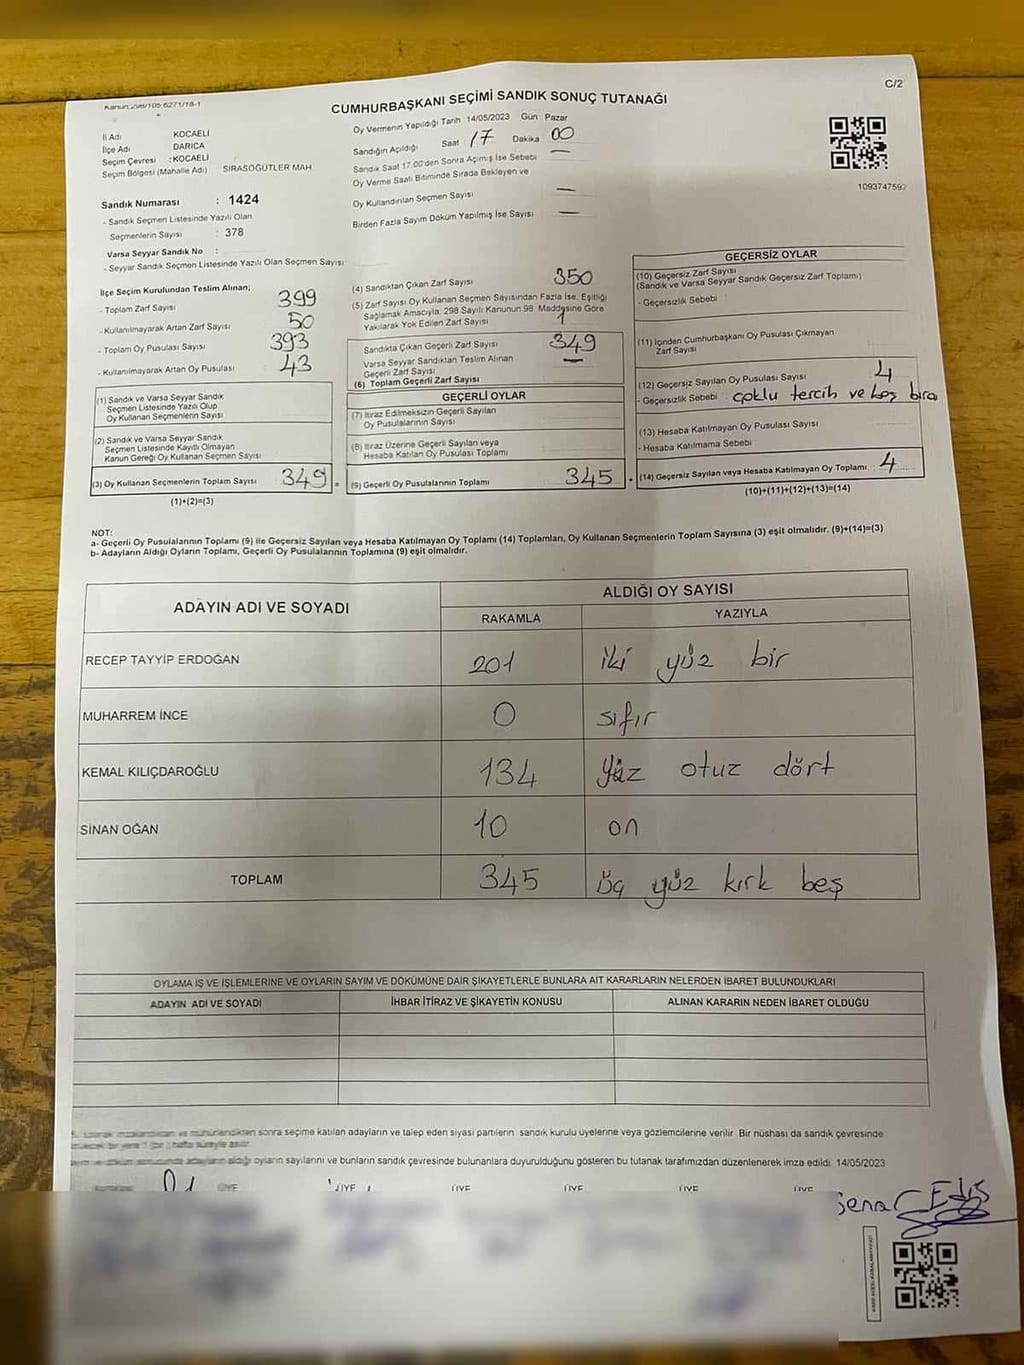 C/2
CUMHURBAŞKANI SEÇİMİ SANDIK SONUÇ TUTANAĞI
İl Adı KOCAELİ
İlçe Adı DARICA
Seçim Çevresi : KOCAELİ
Seçim Bölgesi (Mahalle Adı) : SIRASÖĞÜTLER MAH.
Oy Vermenin Yapıldığı Tarih 14/05/2023 Gün Pazar
Sandığın Açıldığı Saat : 17 Dakika 00
Sandık Saat 17.00'den Sonra Açımış İse Sebebi —
Oy Verme Saati Bitiminde Sırada Bekleyen ve
Oy Kullandırılan Seçmen Sayısı —
Birden Fazla Sayım Döküm Yapılmış İse Sayısı —
1093747592
Sandık Numarası : 1424
- Sandık Seçmen Listesinde Yazılı Olan
Seçmenlerin Sayısı : 378
Varsa Seyyar Sandık No :
- Seyyar Sandık Seçmen Listesinde Yazılı Olan Seçmen Sayısı:
İlçe Seçim Kurulundan Teslim Alınan;
- Toplam Zarf Sayısı 399
- Kullanılmayarak Artan Zarf Sayısı 50
- Toplam Oy Pusulası Sayısı 393
- Kullanılmayarak Artan Oy Pusulası 43
(1) Sandık ve Varsa Seyyar Sandık
Seçmen Listesinde Yazılı Olup
Oy Kullanan Seçmenlerin Sayısı
(2) Sandık ve Varsa Seyyar Sandık
Seçmen Listesinde Kayıtlı Olmayan
Kanun Gereği Oy Kullanan Seçmen Sayısı
(3) Oy Kullanan Seçmenlerin Toplam Sayısı 349
(1)+(2)=(3)
(4) Sandıktan Çıkan Zarf Sayısı 350
(5) Zarf Sayısı Oy Kullanan Seçmen Sayısından Fazla İse, Eşitliği
Sağlamak Amacıyla; 298 Sayılı Kanunun 98. Maddesine Göre
Yakılarak Yok Edilen Zarf Sayısı 1
Sandıkta Çıkan Geçerli Zarf Sayısı 349
Varsa Seyyar Sandıktan Teslim Alınan
Geçerli Zarf Sayısı —
(6) Toplam Geçerli Zarf Sayısı
GEÇERLİ OYLAR
(7) İtiraz Edilmeksizin Geçerli Sayılan
Oy Pusulalarının Sayısı
(8) İtiraz Üzerine Geçerli Sayılan veya
Hesaba Katılan Oy Pusulası Toplamı
= (9) Geçerli Oy Pusulalarının Toplamı 345
GEÇERSİZ OYLAR
(10) Geçersiz Zarf Sayısı
(Sandık ve Varsa Seyyar Sandık Geçersiz Zarf Toplamı)
- Geçersizlik Sebebi
(11) İçinden Cumhurbaşkanı Oy Pusulası Çıkmayan
Zarf Sayısı
(12) Geçersiz Sayılan Oy Pusulası Sayısı 4
- Geçersizlik Sebebi çoklu tercih ve boş bıra
(13) Hesaba Katılmayan Oy Pusulası Sayısı
- Hesaba Katılmama Sebebi
+ (14) Geçersiz Sayılan veya Hesaba Katılmayan Oy Toplamı : 4
(10)+(11)+(12)+(13)=(14)
NOT:
a- Geçerli Oy Pusulalarının Toplamı (9) ile Geçersiz Sayılan veya Hesaba Katılmayan Oy Toplamı (14) Toplamları, Oy Kullanan Seçmenlerin Toplam Sayısına (3) eşit olmalıdır. (9)+(14)=(3)
b- Adayların Aldığı Oyların Toplamı, Geçerli Oy Pusulalarının Toplamına (9) eşit olmalıdır.
ADAYIN ADI VE SOYADI ALDIĞI OY SAYISI
RAKAMLA YAZIYLA
RECEP TAYYİP ERDOĞAN 201 iki yüz bir
MUHARREM İNCE 0 sıfır
KEMAL KILIÇDAROĞLU 134 yüz otuz dört
SİNAN OĞAN 10 on
TOPLAM 345 üç yüz kırk beş
OYLAMA İŞ VE İŞLEMLERİNE VE OYLARIN SAYIM VE DÖKÜMÜNE DAİR ŞİKAYETLERLE BUNLARA AİT KARARLARIN NELERDEN İBARET BULUNDUKLARI
ADAYIN ADI VE SOYADI İHBAR İTİRAZ VE ŞİKAYETİN KONUSU ALINAN KARARIN NEDEN İBARET OLDUĞU
sonra seçime katılan adayların ve talep eden siyasi partilerin sandık kurulu üyelerine veya gözlemcilerine verilir. Bir nüshası da sandık çevresinde
oyların sayılarını ve bunların sandık çevresinde bulunanlara duyurulduğunu gösteren bu tutanak tarafımızdan düzenlenerek imza edildi. 14/05/2023
ÜYE ÜYE ÜYE ÜYE ÜYE ÜYE